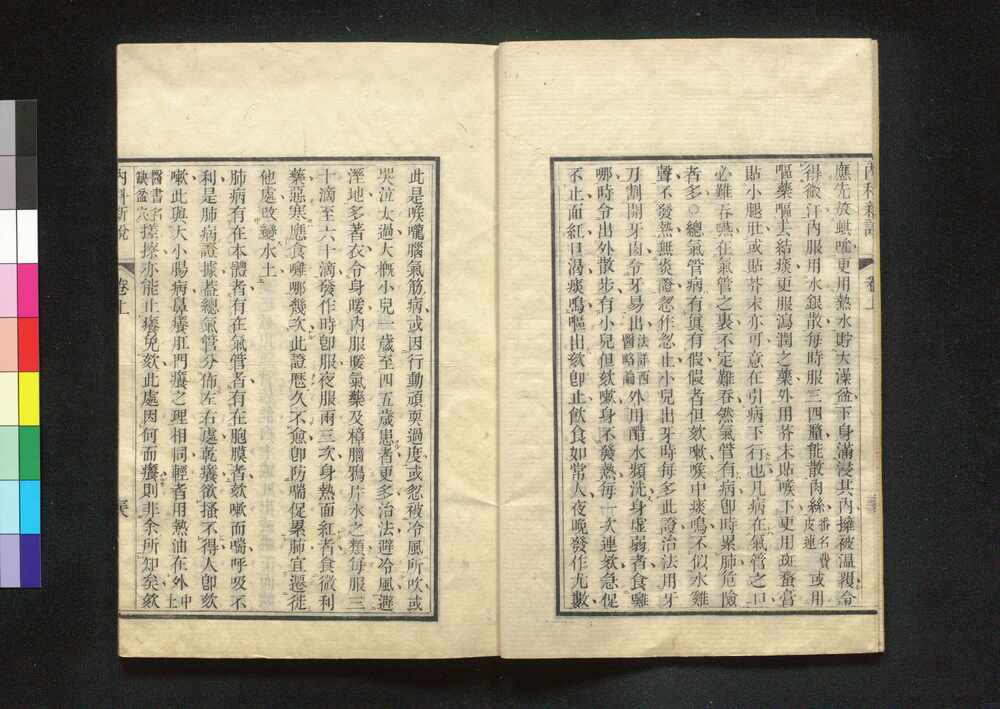 內科新說 卷上
應先放蜞嘬更用熱水貯大澡盆下身滿浸其內擁被溫覆令
得微汗內服用水銀散每時服三四釐能散肉絲番名費皮連或用
嘔藥嘔去結痰更服瀉潤之藥外用芥末貼喉下更用斑蝥膏
貼小腿肚或貼芥末亦可意在引病下行也凡病在氣管之口
必難吞嚥在氣管之裏不定難吞然氣管有病卽時累肺危險
者多○總氣管病有眞有假假者但欬嗽喉中痰鳴不似水雞
聲不發熱無炎證忽作忽止小兒出牙時每多此證治法用牙
刀割開牙肉令牙易出法詳西醫略論外用醋水頻洗身虛弱者食雞
哪時令出外散步有小兒但欬嗽身不發熱每一次連欬急促
不止面紅目濁痰鳴嘔出欬卽止飲食如常人夜晚發作尤數
此是喉嚨腦氣筋病或因行動頑耍過度或忽被冷風所吹或
哭泣太過大槪小兒一歲至四五歲患者更多治法避冷風避
溼地多著衣令身暖內服暖氣藥及樟腦鴉片水之類每服三
十滴至六十滴發作時卽服夜服兩三次身熱面紅者食微利
藥惡寒應食雞哪幾次此證歷久不愈卽防喘促累肺宜遷徙
他處改變水土
肺病有在本體者有在氣管者有在胞膜者欬嗽而喘呼吸不
利是肺病證據蓋總氣管分佈左右處乾癢欲搔不得人卽欬
嗽此與大小腸病鼻癢肛門癢之理相同輕者用熱油在外中土
醫書名缺盆穴搓擦亦能止癢免欬此處因何而癢則非余所知矣欬
內科新說 卷上